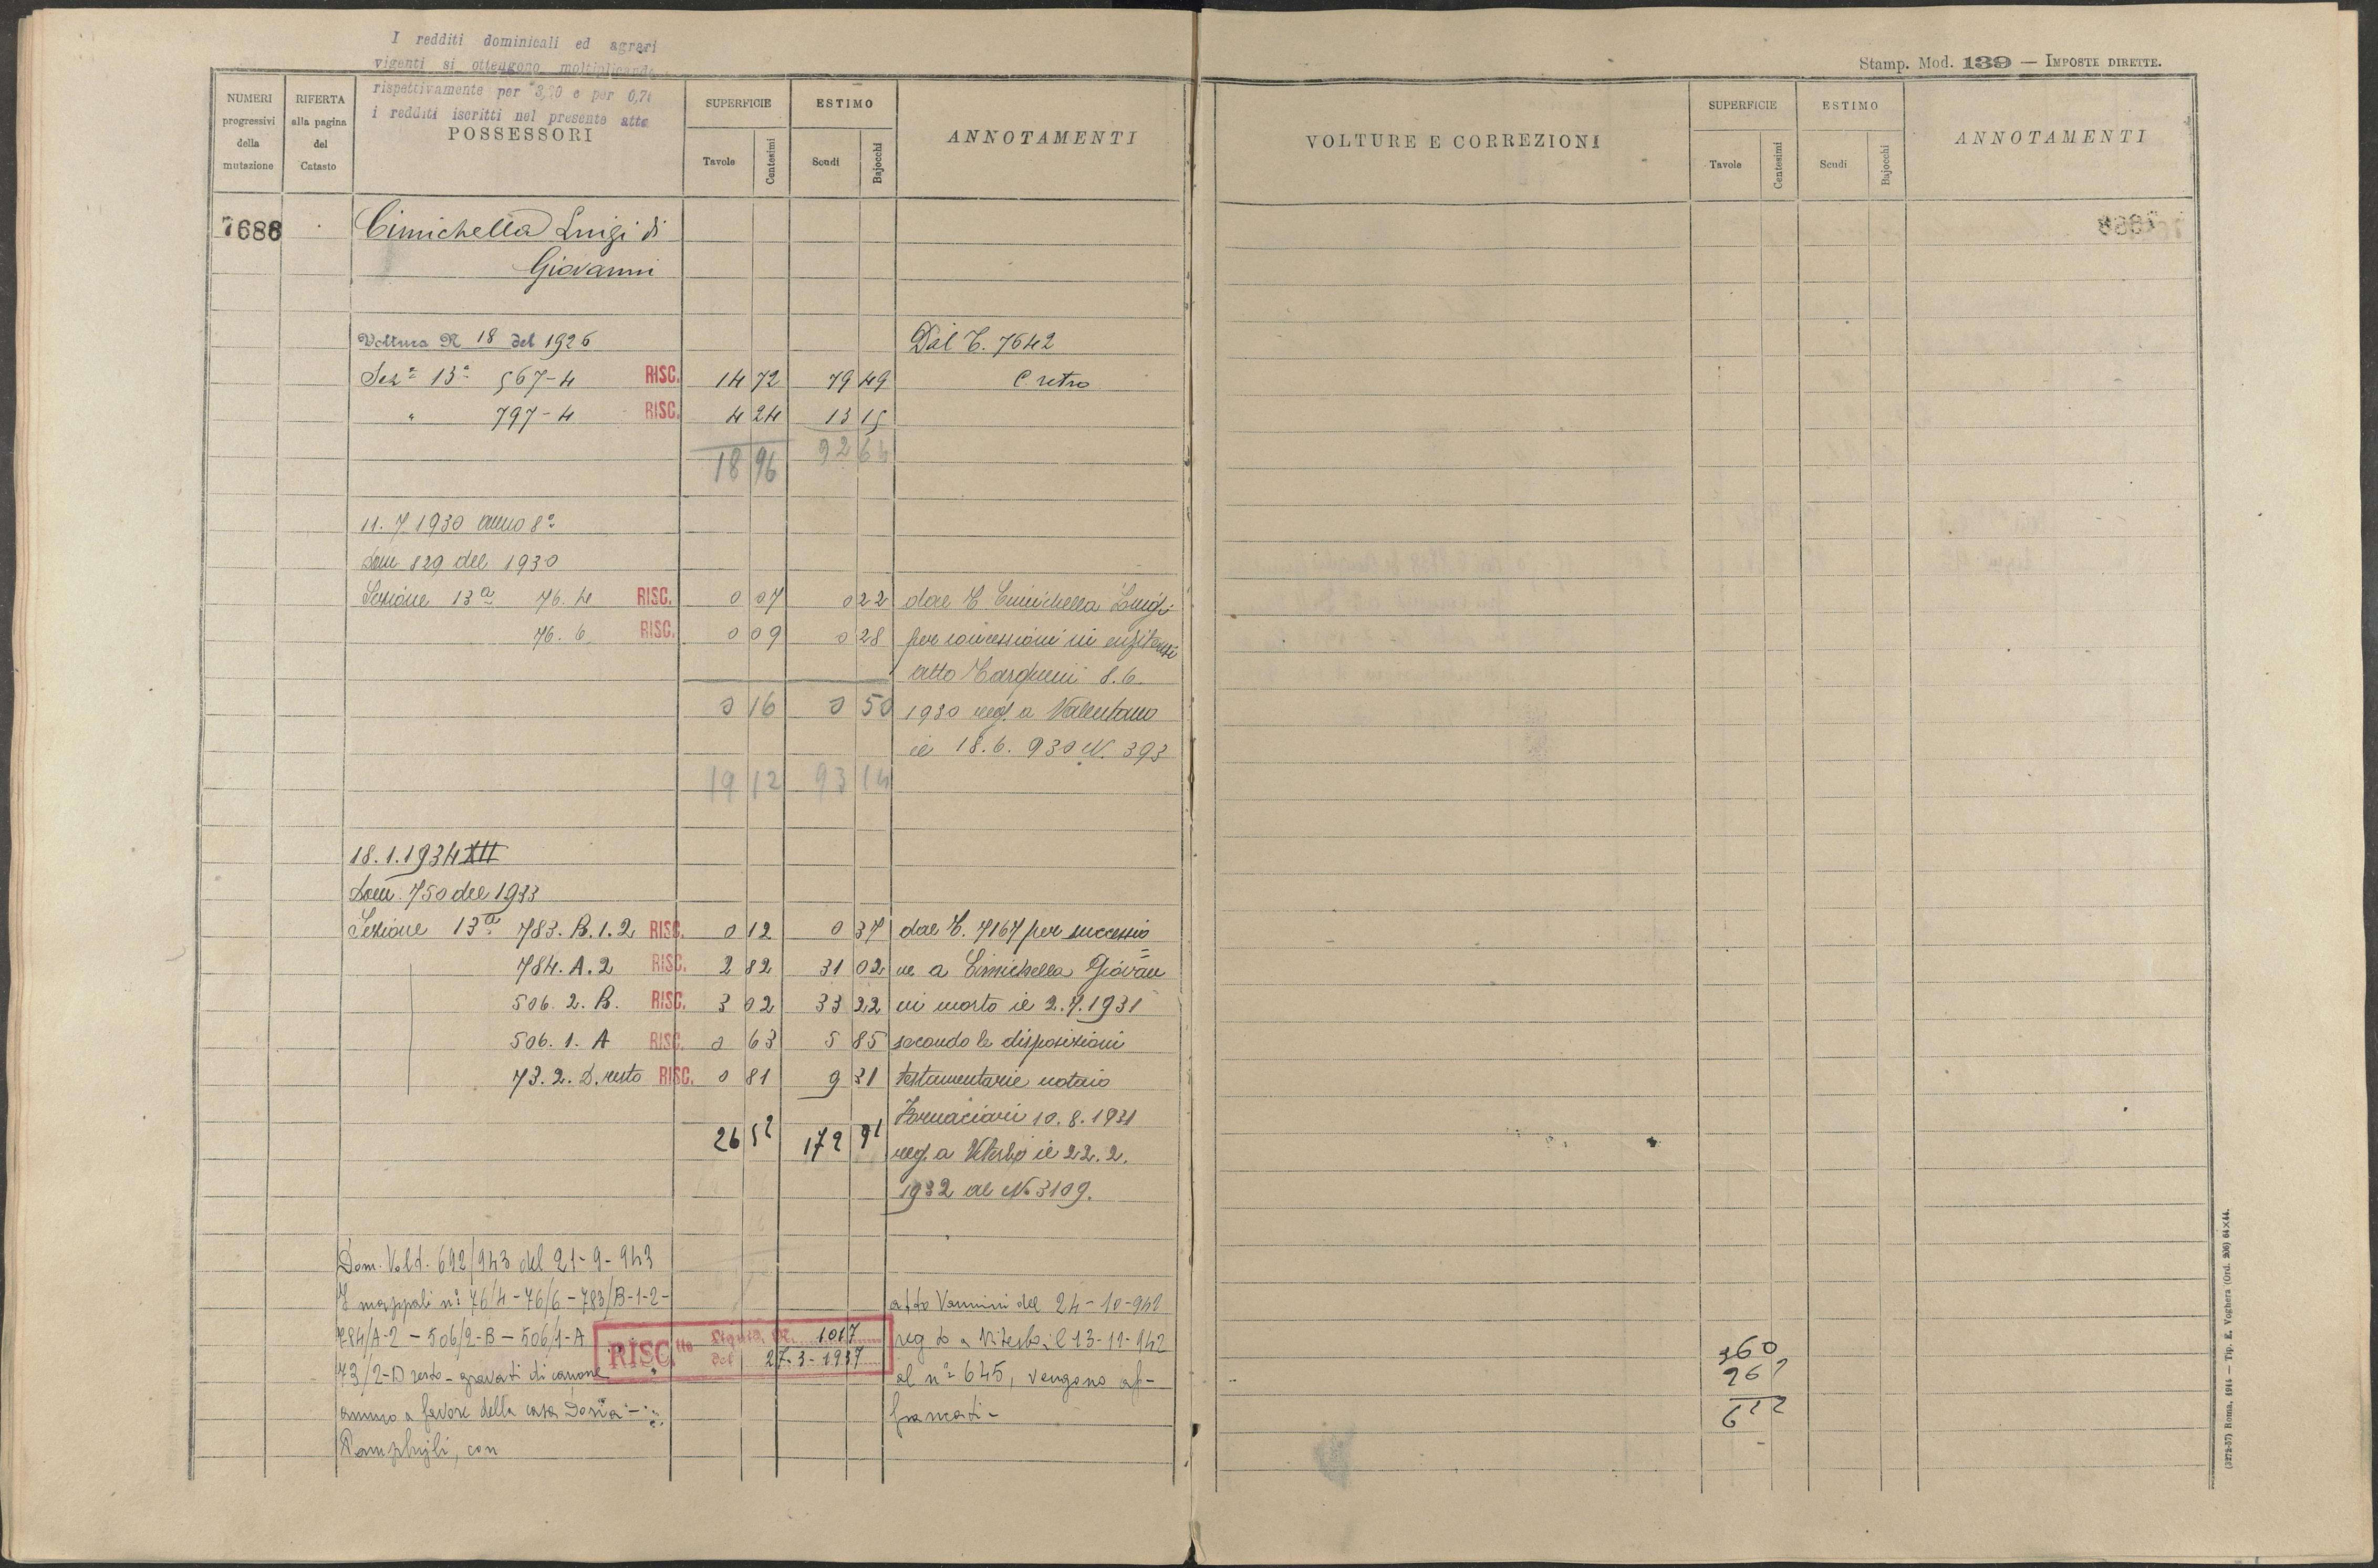 I redditi dominicali ed agrari
vigenti si ottengono moltiplicando
rispettivamente per 3,20 e per 0,70
i redditi iscritti nel presente atto
Stamp. Mod. 139 — IMPOSTE DIRETTE.
NUMERI progressivi della mutazione
RIFERTA alla pagina del Catasto
POSSESSORI
SUPERFICIE
Tavole Centesimi
ESTIMO
Scudi Bajocchi
ANNOTAMENTI
VOLTURE E CORREZIONI
SUPERFICIE
Tavole Centesimi
ESTIMO
Scudi Bajocchi
ANNOTAMENTI
7688 Cimichella Luigi di
Giovanni
Voltura N 18 del 1926 Dal C. 7642
Sez.e 13a 567-4 RISC. 14 72 79 49 e retro
" 797-4 RISC. 4 24 13 15
18 96 92 64
11.7.1930 anno 8°
Dom 829 del 1930
Sezione 13a 76.4 RISC. 0 07 0 22 dal C Cimichella Luigi
76.6 RISC. 0 09 0 28 per concessioni in enfiteusi
atto Tarquini 8.6.
0 16 0 50 1930 reg. a Valentano
il 18.6.930 N. 393
19 12 93 14
18.1.1934 XII
Dom. 750 del 1933
Sezione 13a 783.B.1.2 RISC. 0 12 0 37 dal C. 7167 per successio
784.A.2 RISC. 2 82 31 02 ne a Cimichella Giovan
506.2.B. RISC. 3 02 33 22 ni morto il 2.7.1931
506.1.A RISC. 0 63 5 85 secondo le disposizioni
73.2.D. resto RISC. 0 81 9 31 testamentarie notaio
Fornaciari 10.8.1931
26 52 172 91 reg. a Viterbo il 22.2.
1932 al N. 3109.
Dom. Volt. 692/943 del 21-9-943
I mappali n° 76/4-76/6-783/B-1-2- atto Vannini del 24-10-942
784/A-2-506/2-B-506/1-A reg to a Viterbo il 13-11-942
RISC.tto N. 1017
del 27-3-1937
73/2-D resto-gravati di canone al n° 645, vengono af-
annuo a favore della casa Doria- francati-
Pamphyli, con
360
(3272-57) Roma, 1914 — Tip. E. Voghera (Ord. 206) 64×44.